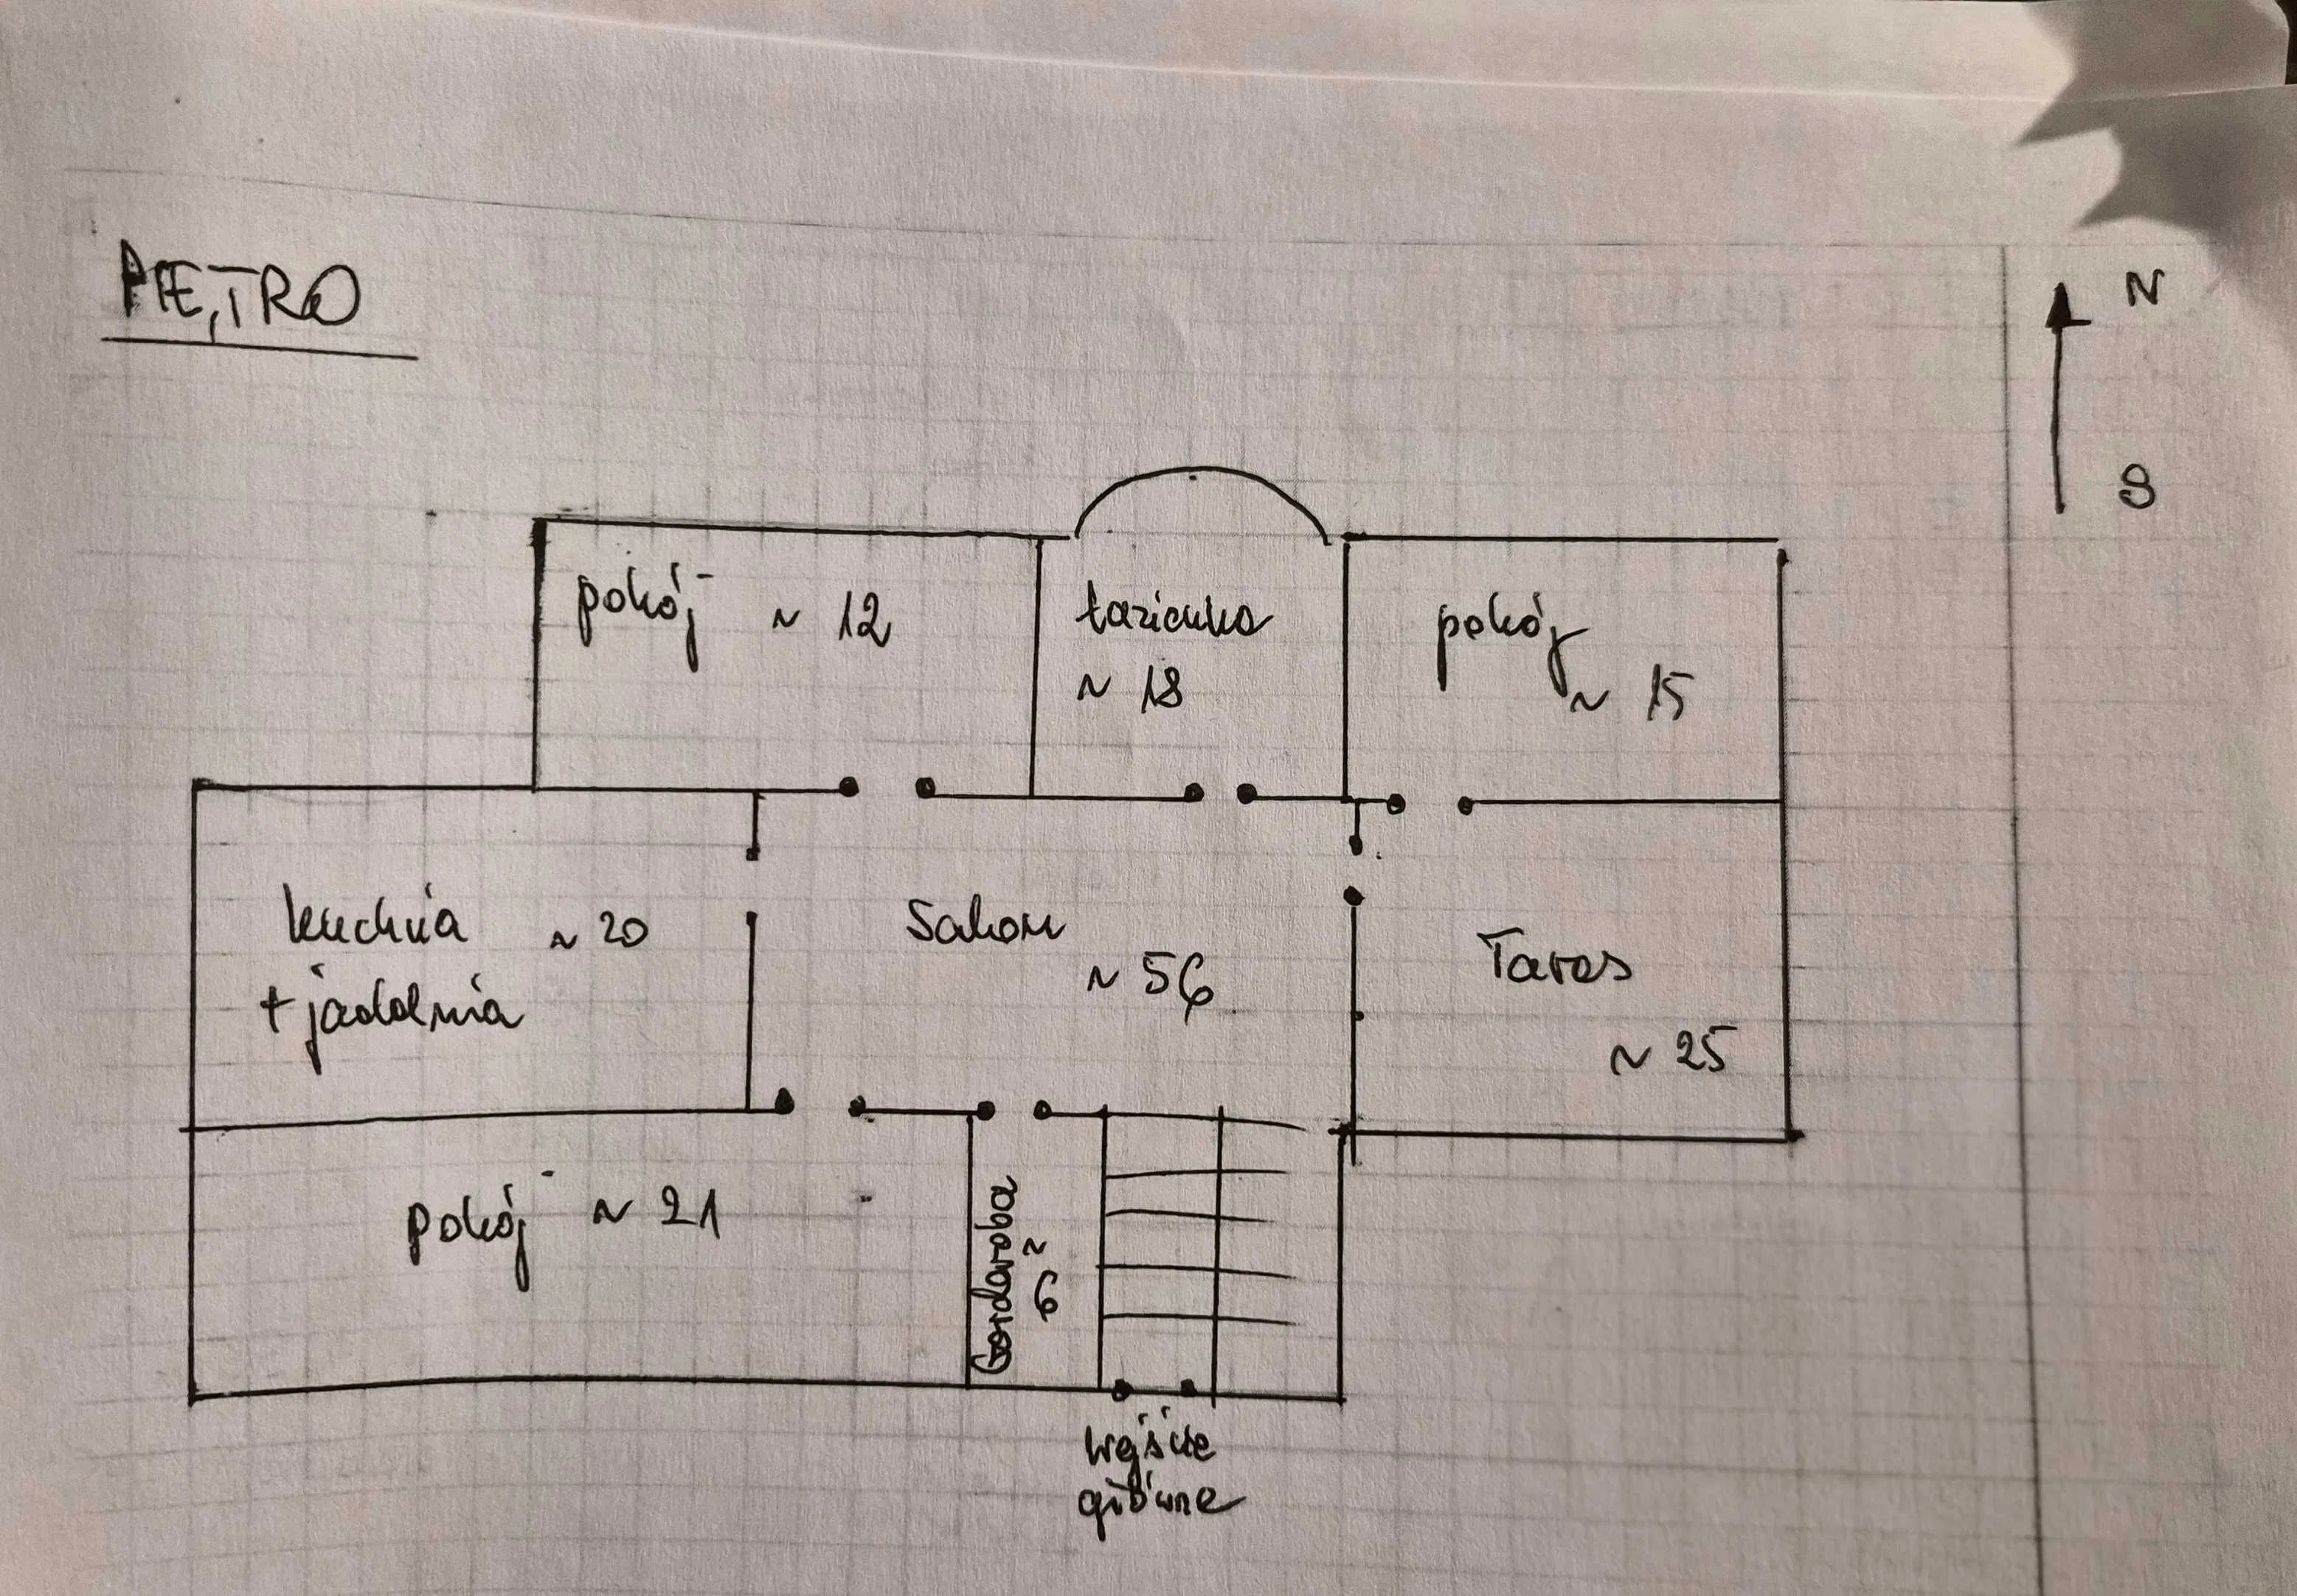 PIĘTRO
N
S
pokój ~ 12
łazienka
~ 18
pokój
~ 15
kuchnia ~ 20
+ jadalnia
Salon
~ 56
Taras
~ 25
pokój ~ 21
Gardaroba
~ 6
Wejście
główne